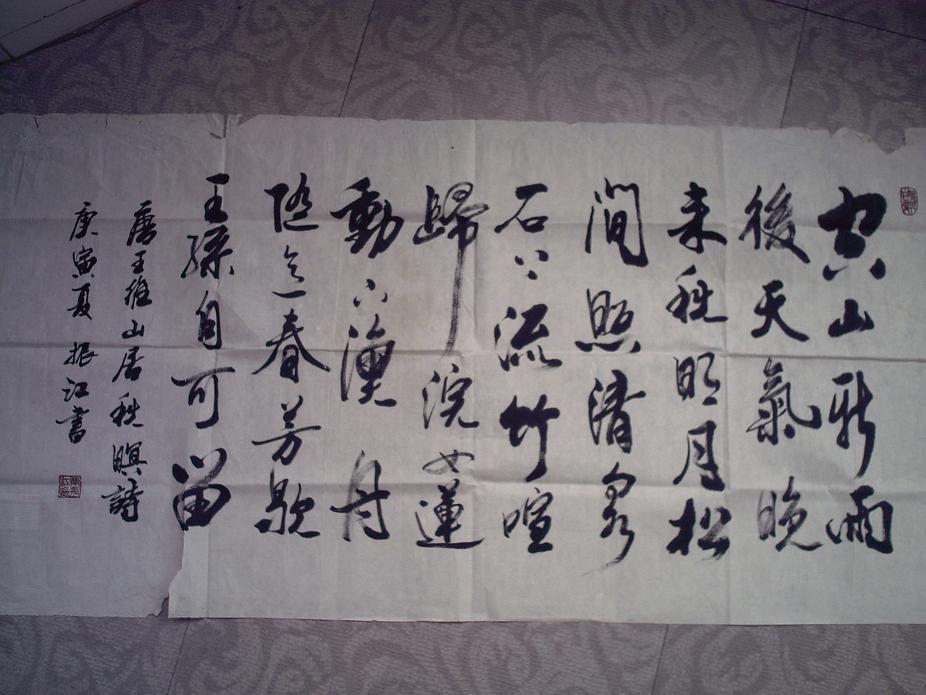 空山新雨
後天氣晚
来秋明月松
間照清泉
石上流竹喧
歸浣女蓮
動下漁舟
隨意春芳歇
王孫自可留
唐王維山居秋暝詩
庚寅夏 振江書